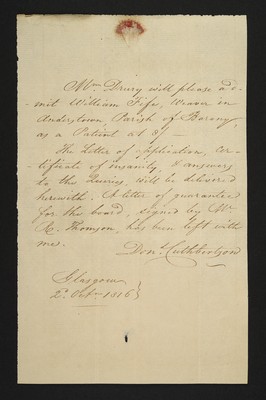 Mr. Drury will please ad-
-mit William Fife, Weaver in
Anderstown, Parish of Barony,
as a Patient at 8/-
The Letter of application, cer-
-tificate of insanity, & answers
to the Queries, will be delivered
herewith. A letter of guarantee
for the board, signed by Mr.
R. Thomson, has been left with
me.
Don. Cuthbertson
Glasgow
2d. Octr. 1816